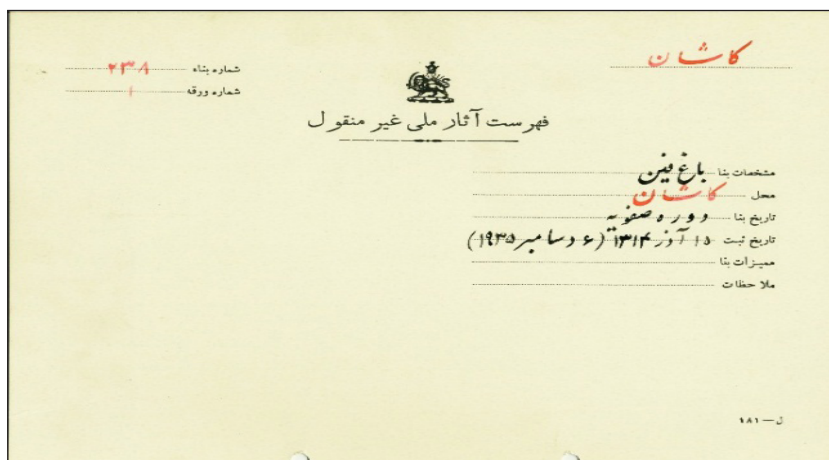 کاشان
شماره بناء ۲۳۸
شماره ورقه ۱
فهرست آثار ملی غیر منقول
مشخصات بنا باغ فین
محل کاشان
تاریخ بنا دوره صفویه
تاریخ ثبت ۱۵ آذر ۱۳۱۴ (۶ دسامبر ۱۹۳۵)
ممیزات بنا
ملاحظات
ل — ۱۸۱